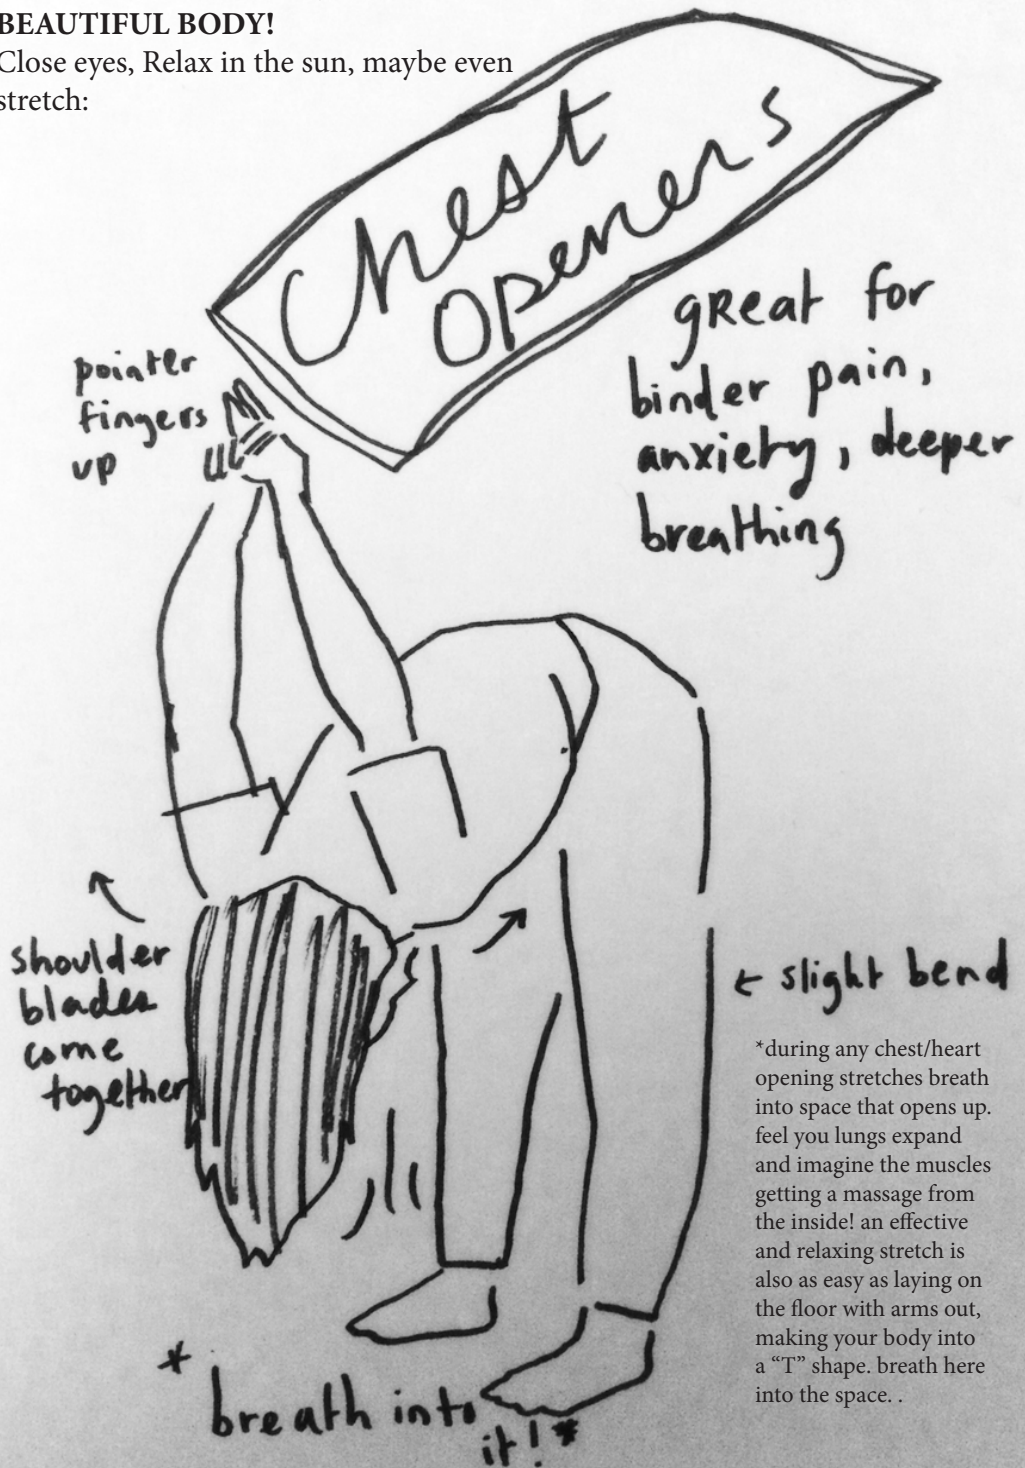 BEAUTIFUL BODY!
Close eyes, Relax in the sun, maybe even
stretch:
Chest
Openers
great for
binder pain,
anxiety, deeper
breathing
pointer
fingers
up
shoulder
blades
come
together
← slight bend
*during any chest/heart
opening stretches breath
into space that opens up.
feel you lungs expand
and imagine the muscles
getting a massage from
the inside! an effective
and relaxing stretch is
also as easy as laying on
the floor with arms out,
making your body into
a “T” shape. breath here
into the space. .
* breath into
it! *